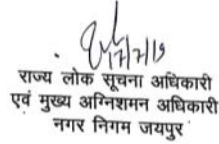 17/7/19
राज्य लोक सूचना अधिकारी
एवं मुख्य अग्निशमन अधिकारी
नगर निगम जयपुर